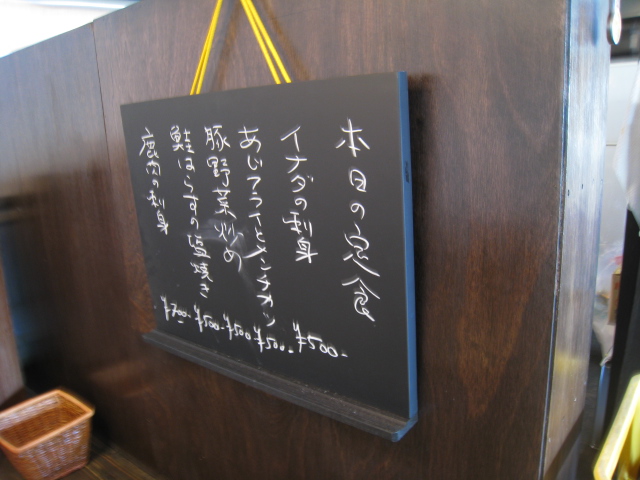 本日の定食
イナダの刺身 ¥500-
あじフライとメンチカツ ¥500-
豚野菜炒め ¥500
鮭はらすの塩焼き ¥500-
鹿肉の刺身 ¥700-